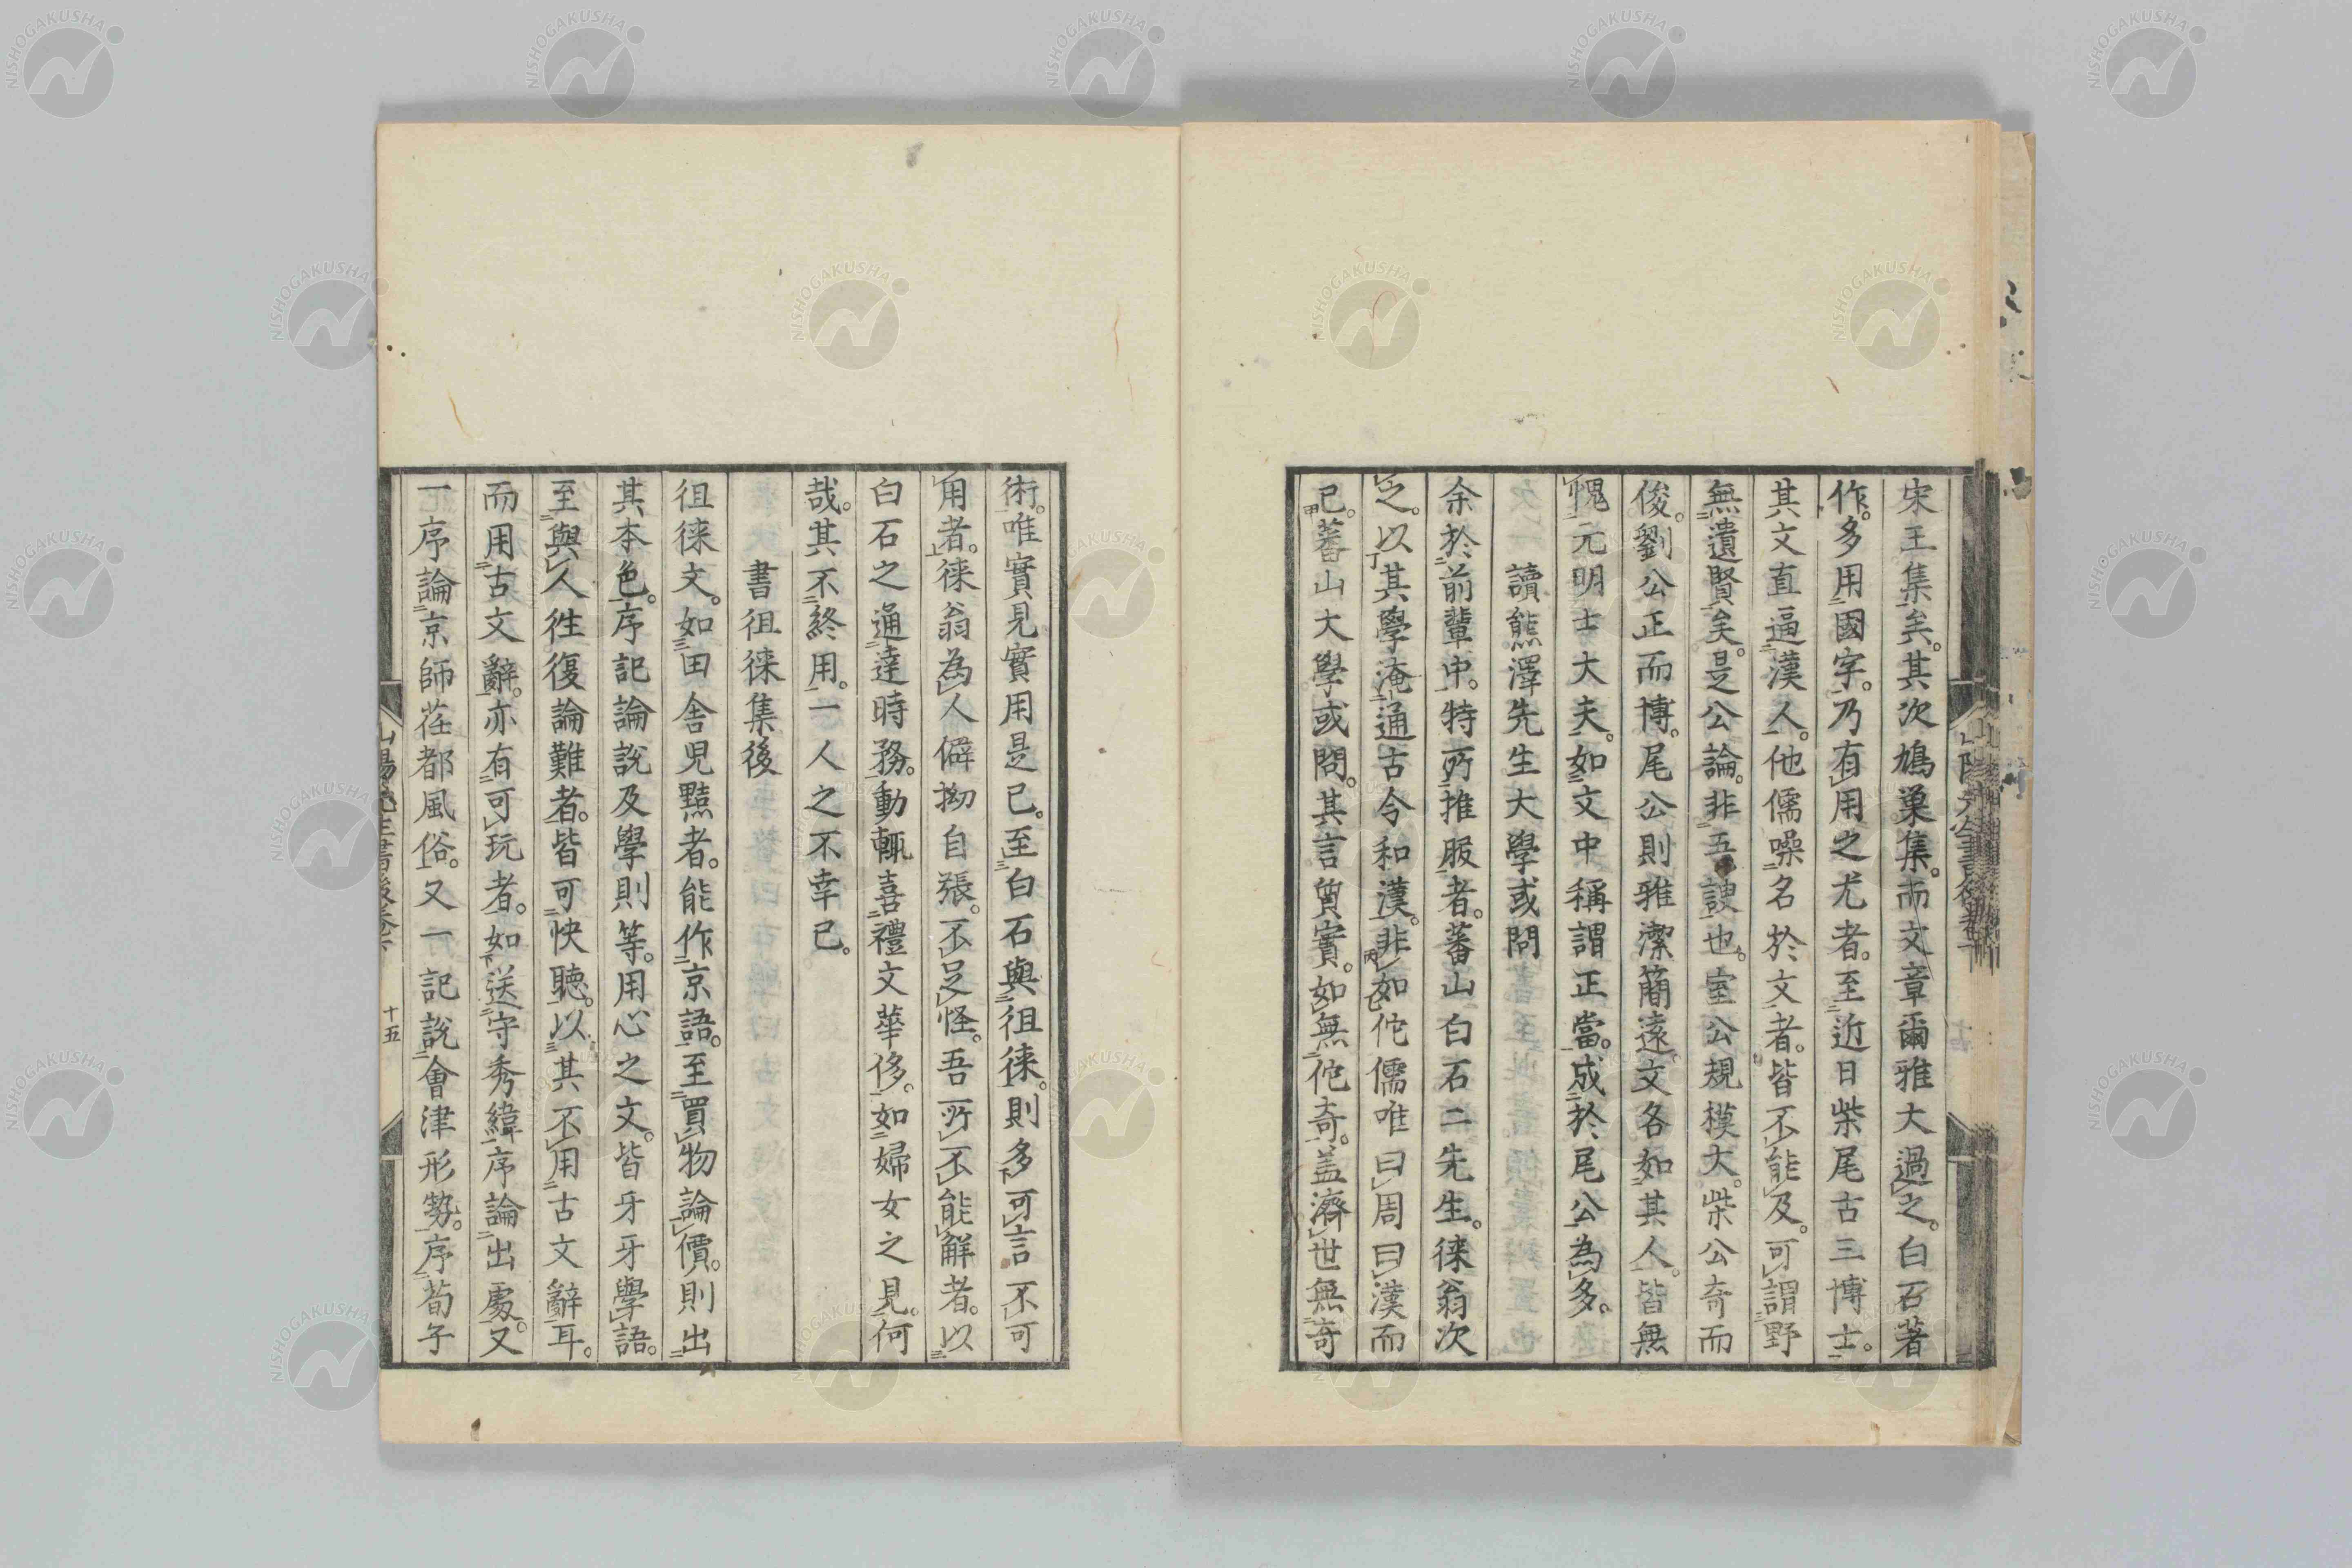 宋王集矣。其次鳩巢集。而文章爾雅大過之。白石著
作。多用國字。乃有用之尤者。至近日柴尾古三博士。
其文直逼漢人。他儒噪名於文者。皆不能及。可謂野
無遺賢矣。是公論。非吾諛也。室公規模大。柴公奇而
俊。劉公正而博。尾公則雅潔簡遠。文各如其人。皆無
愧元明士大夫。如文中稱謂正當。成於尾公為多。
讀熊澤先生大學或問
余於前輩中。特所推服者。蕃山白石二先生。徠翁次
之。以其學淹通古今和漢。非如佗儒唯曰周曰漢而
已。蕃山大學或問。其言質實。如無佗奇。盖濟世無奇
術。唯實見實用是已。至白石與徂徠。則多可言不可
用者。徠翁為人僻拗自張。不足怪。吾所不能解者。以
白石之通達時務。動輙喜禮文華侈。如婦女之見。何
哉。其不終用。一人之不幸已。
書徂徠集後
徂徠文。如田舍児黠者。能作京語。至買物論價。則出
其本色。序記論說及學則等。用心之文。皆牙牙學語。
至與人徃復論難者。皆可快聽。以其不用古文辭耳。
而用古文辭。亦有可玩者。如送守秀緯序論出處。又
一序論京師荏都風俗。又一記說會津形勢。序荀子
山陽先生書後卷下
十五
NISHOGAKUSHA